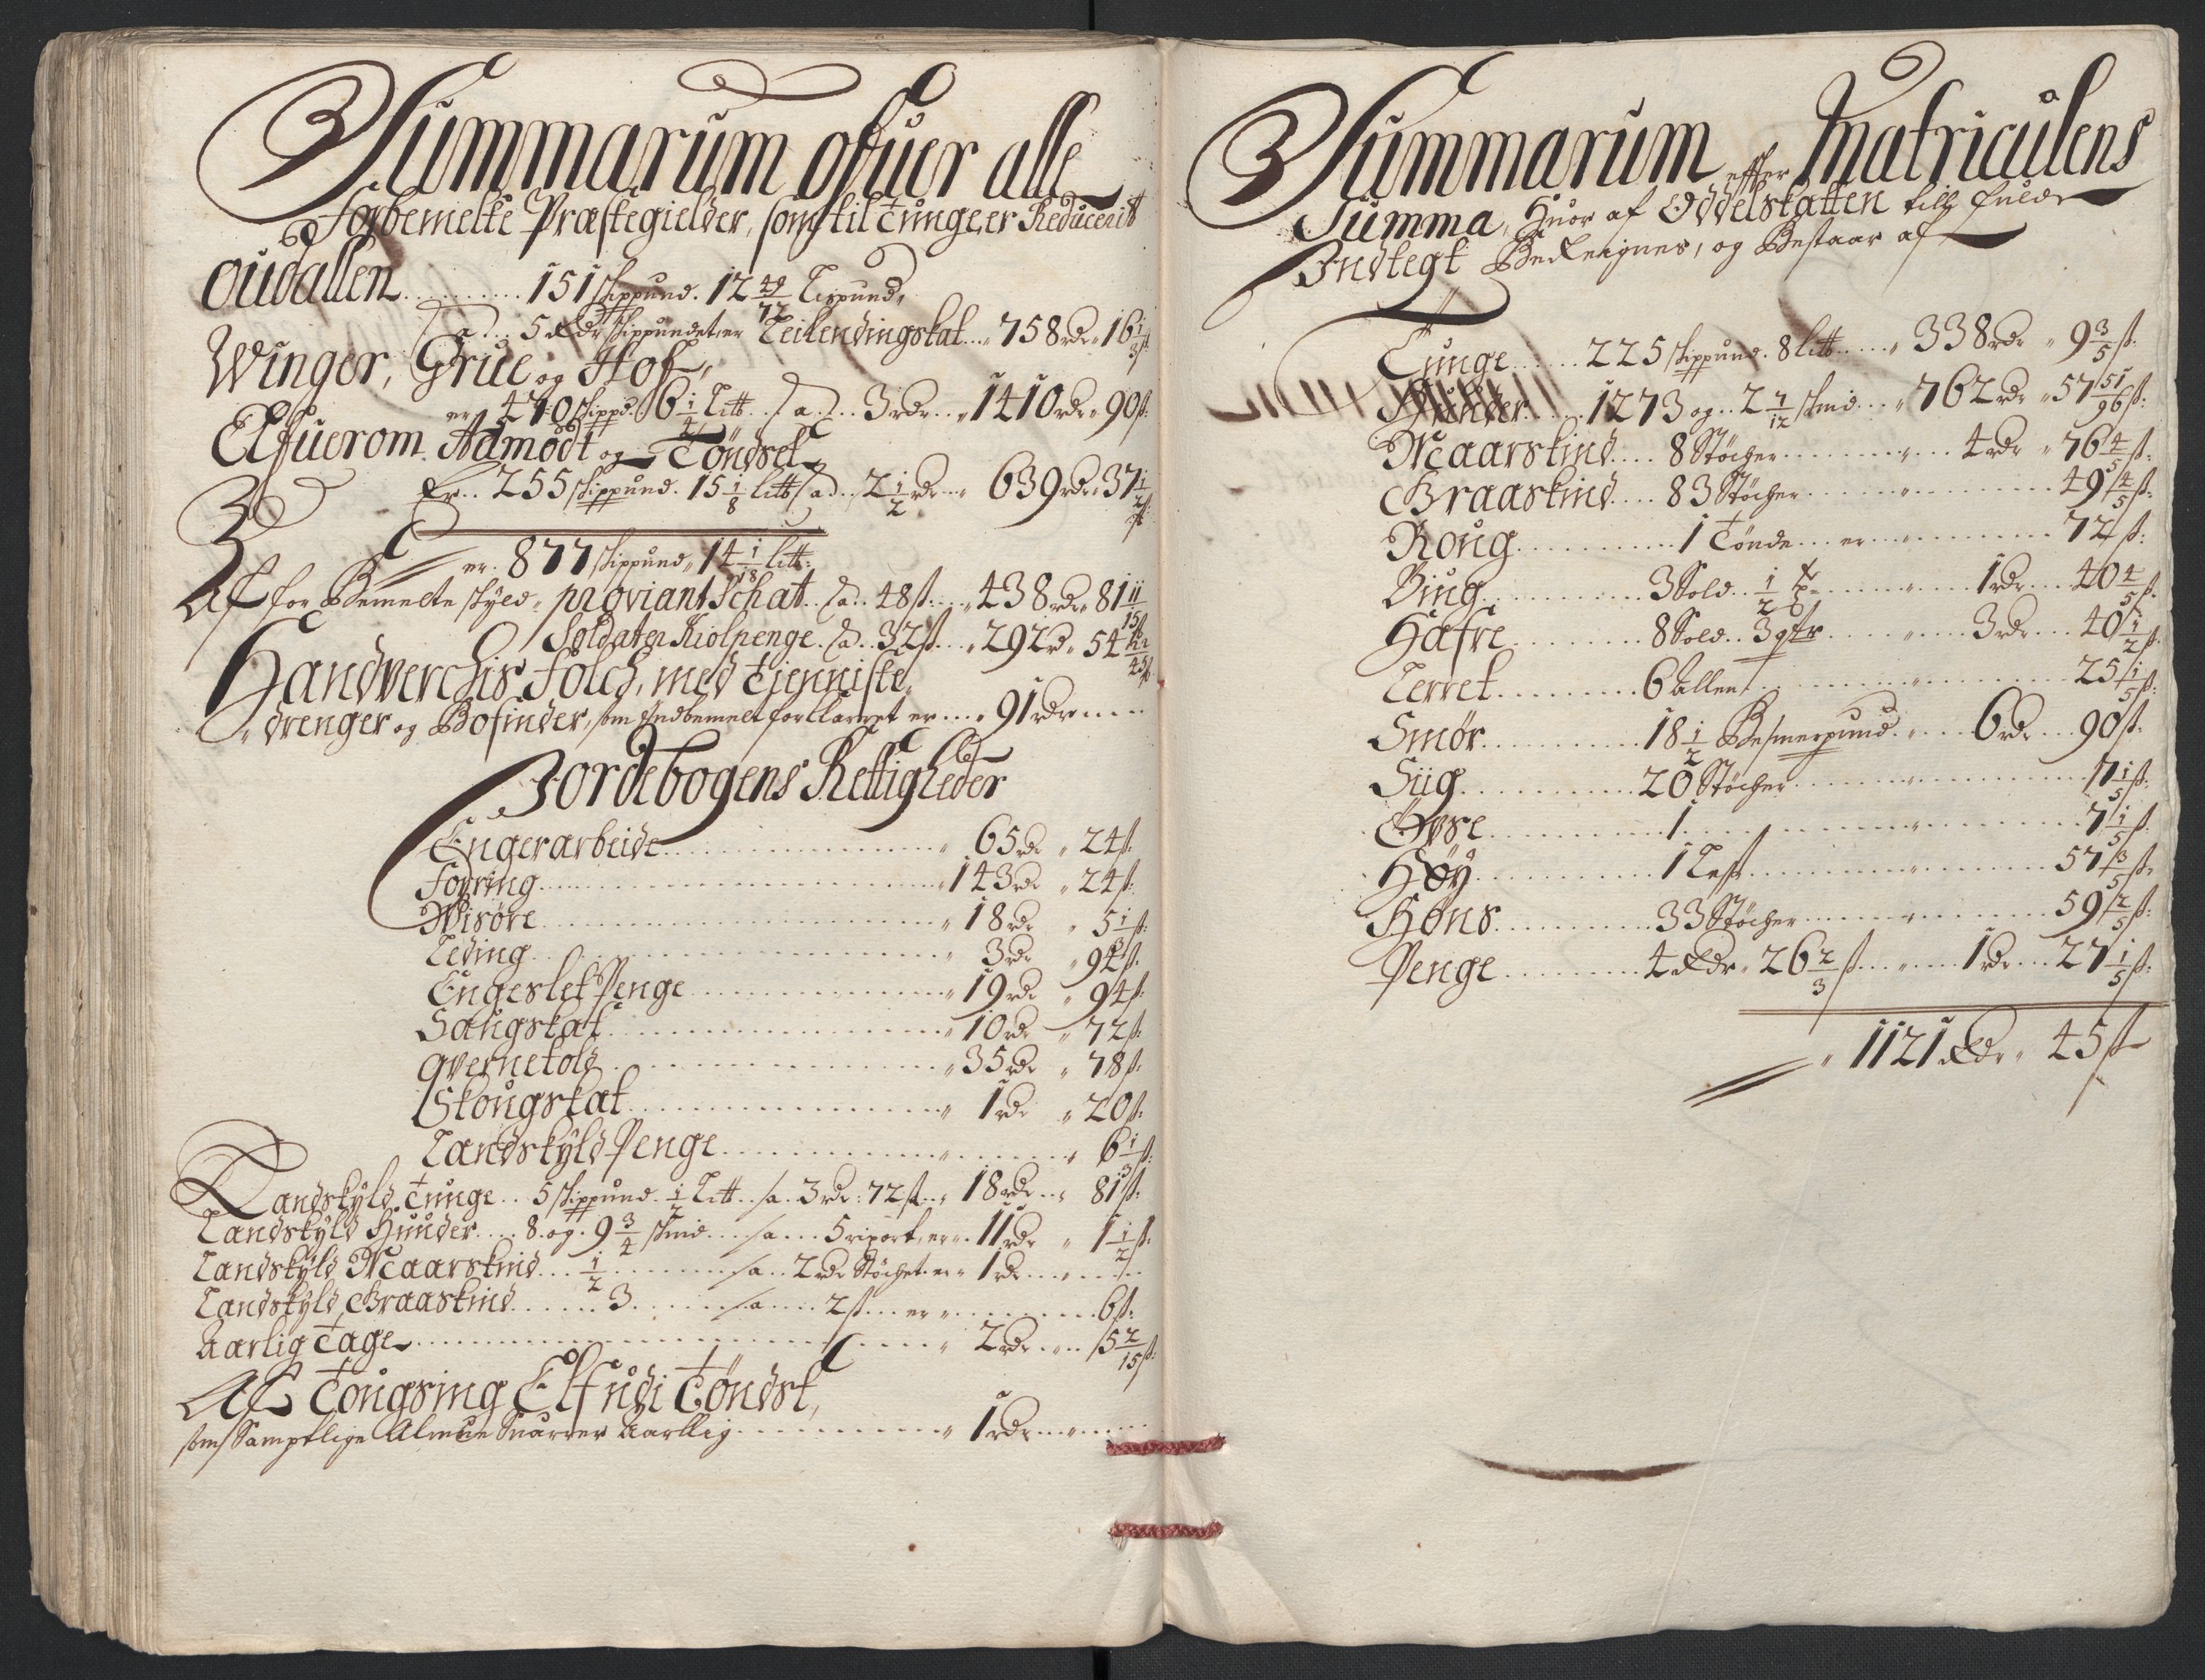 Summarum ofuer alle
forbemelte Præstegielder, som til tunge er Reducerit
Oudallen 151 skippund. 12 49/72 Lispund,
a 5 Rdr skippundet, er Leilendingskat 758 rdr 16 1/3 ß:
Winger, Grue og Hof,
er 470 skippd. 6 1/4 Litt. a 3 rdr 1410 rdr 90 ß:
Elfuerom Aamodt og Töndset
Er 255 skippund. 15 1/8 litt a 2 1/2 rdr 639 rdr 37 1/2 ß
er. 877 skippund, 14 1/18 litt:
Af for Bemelte skyld, proviant Schat a 48 ß 438 rdr 81 11/15 ß
Soldater Kiolpenge a 32 ß 292 rd 54 22/45 ß
Handverchis folch, med tienniste
drenger og Bosinder, som Endbemelt forklarret er 91 rdr
Jordebogens Rettigheder
Engerarbeide 65 rdr 24 ß:
Foering 143 rdr 24 ß:
Wisöre 18 rdr 5 1/3 ß:
Leding 3 rdr 94 ß:
Engeslet Penge 19 rdr 94 ß:
Saugskat 10 rdr 72 ß:
qvernetold 35 rdr 78 ß:
Skougskat 1 rdr 20 ß:
Landskyld Penge 6 1/3 ß:
Landskyld tunge 5 skippund 1/2 Litt a 3 rdr: 72 ß 18 rdr 81 ß:
Landskyld Huuder 8 og 9 3/4 skind a 5 riport, er 11 rdr 1 1/2 ß:
Landskyld Maarskind 1/2 a 2 rdr Stöchet er 1 rdr
Landskyld Graaskind 3 a 2 ß er 6 ß:
Aarlig tage 2 rdr 5 2/15 ß:
Af tougsing Elf udi töndset,
som Samptlige Almue Suarrer Aarllig 1 rdr
Summarum effter Matriculens
Summa, Huor af Oddelskatten till fulde
Indtegt Bereignes, og Bestaar af
Tunge 225 skippund. 8 litt 338 rdr 9 3/5 ß:
Huuder 1273 og 2 7/12 skind 762 rdr 57 51/96 ß:
Maarskind 8 Stöcher 4 rdr 76 4/5 ß:
Graaskind 83 Stöcher 49 4/5 ß:
Roug 1 Tönde er 72 ß:
Biug 3 Sold 1/2 1 rdr 40 4/5 ß:
Hafre 8 Sold 3 qtr 3 rdr 40 1/2 ß:
Lerret 6 allen 25 1/5 ß:
Smör 18 1/2 Besmerpund 6 rdr 90 ß:
Siig 20 Stöcher 7 1/5 ß:
Öxse 1 7 1/5 ß:
Höy 1 Lest 57 3/5 ß:
Höns 33 Stöcher 59 2/5 ß:
Penge 4 Rdr 26 2/3 ß 1 rdr 27 1/5 ß:
1121 Rdr 45 ß